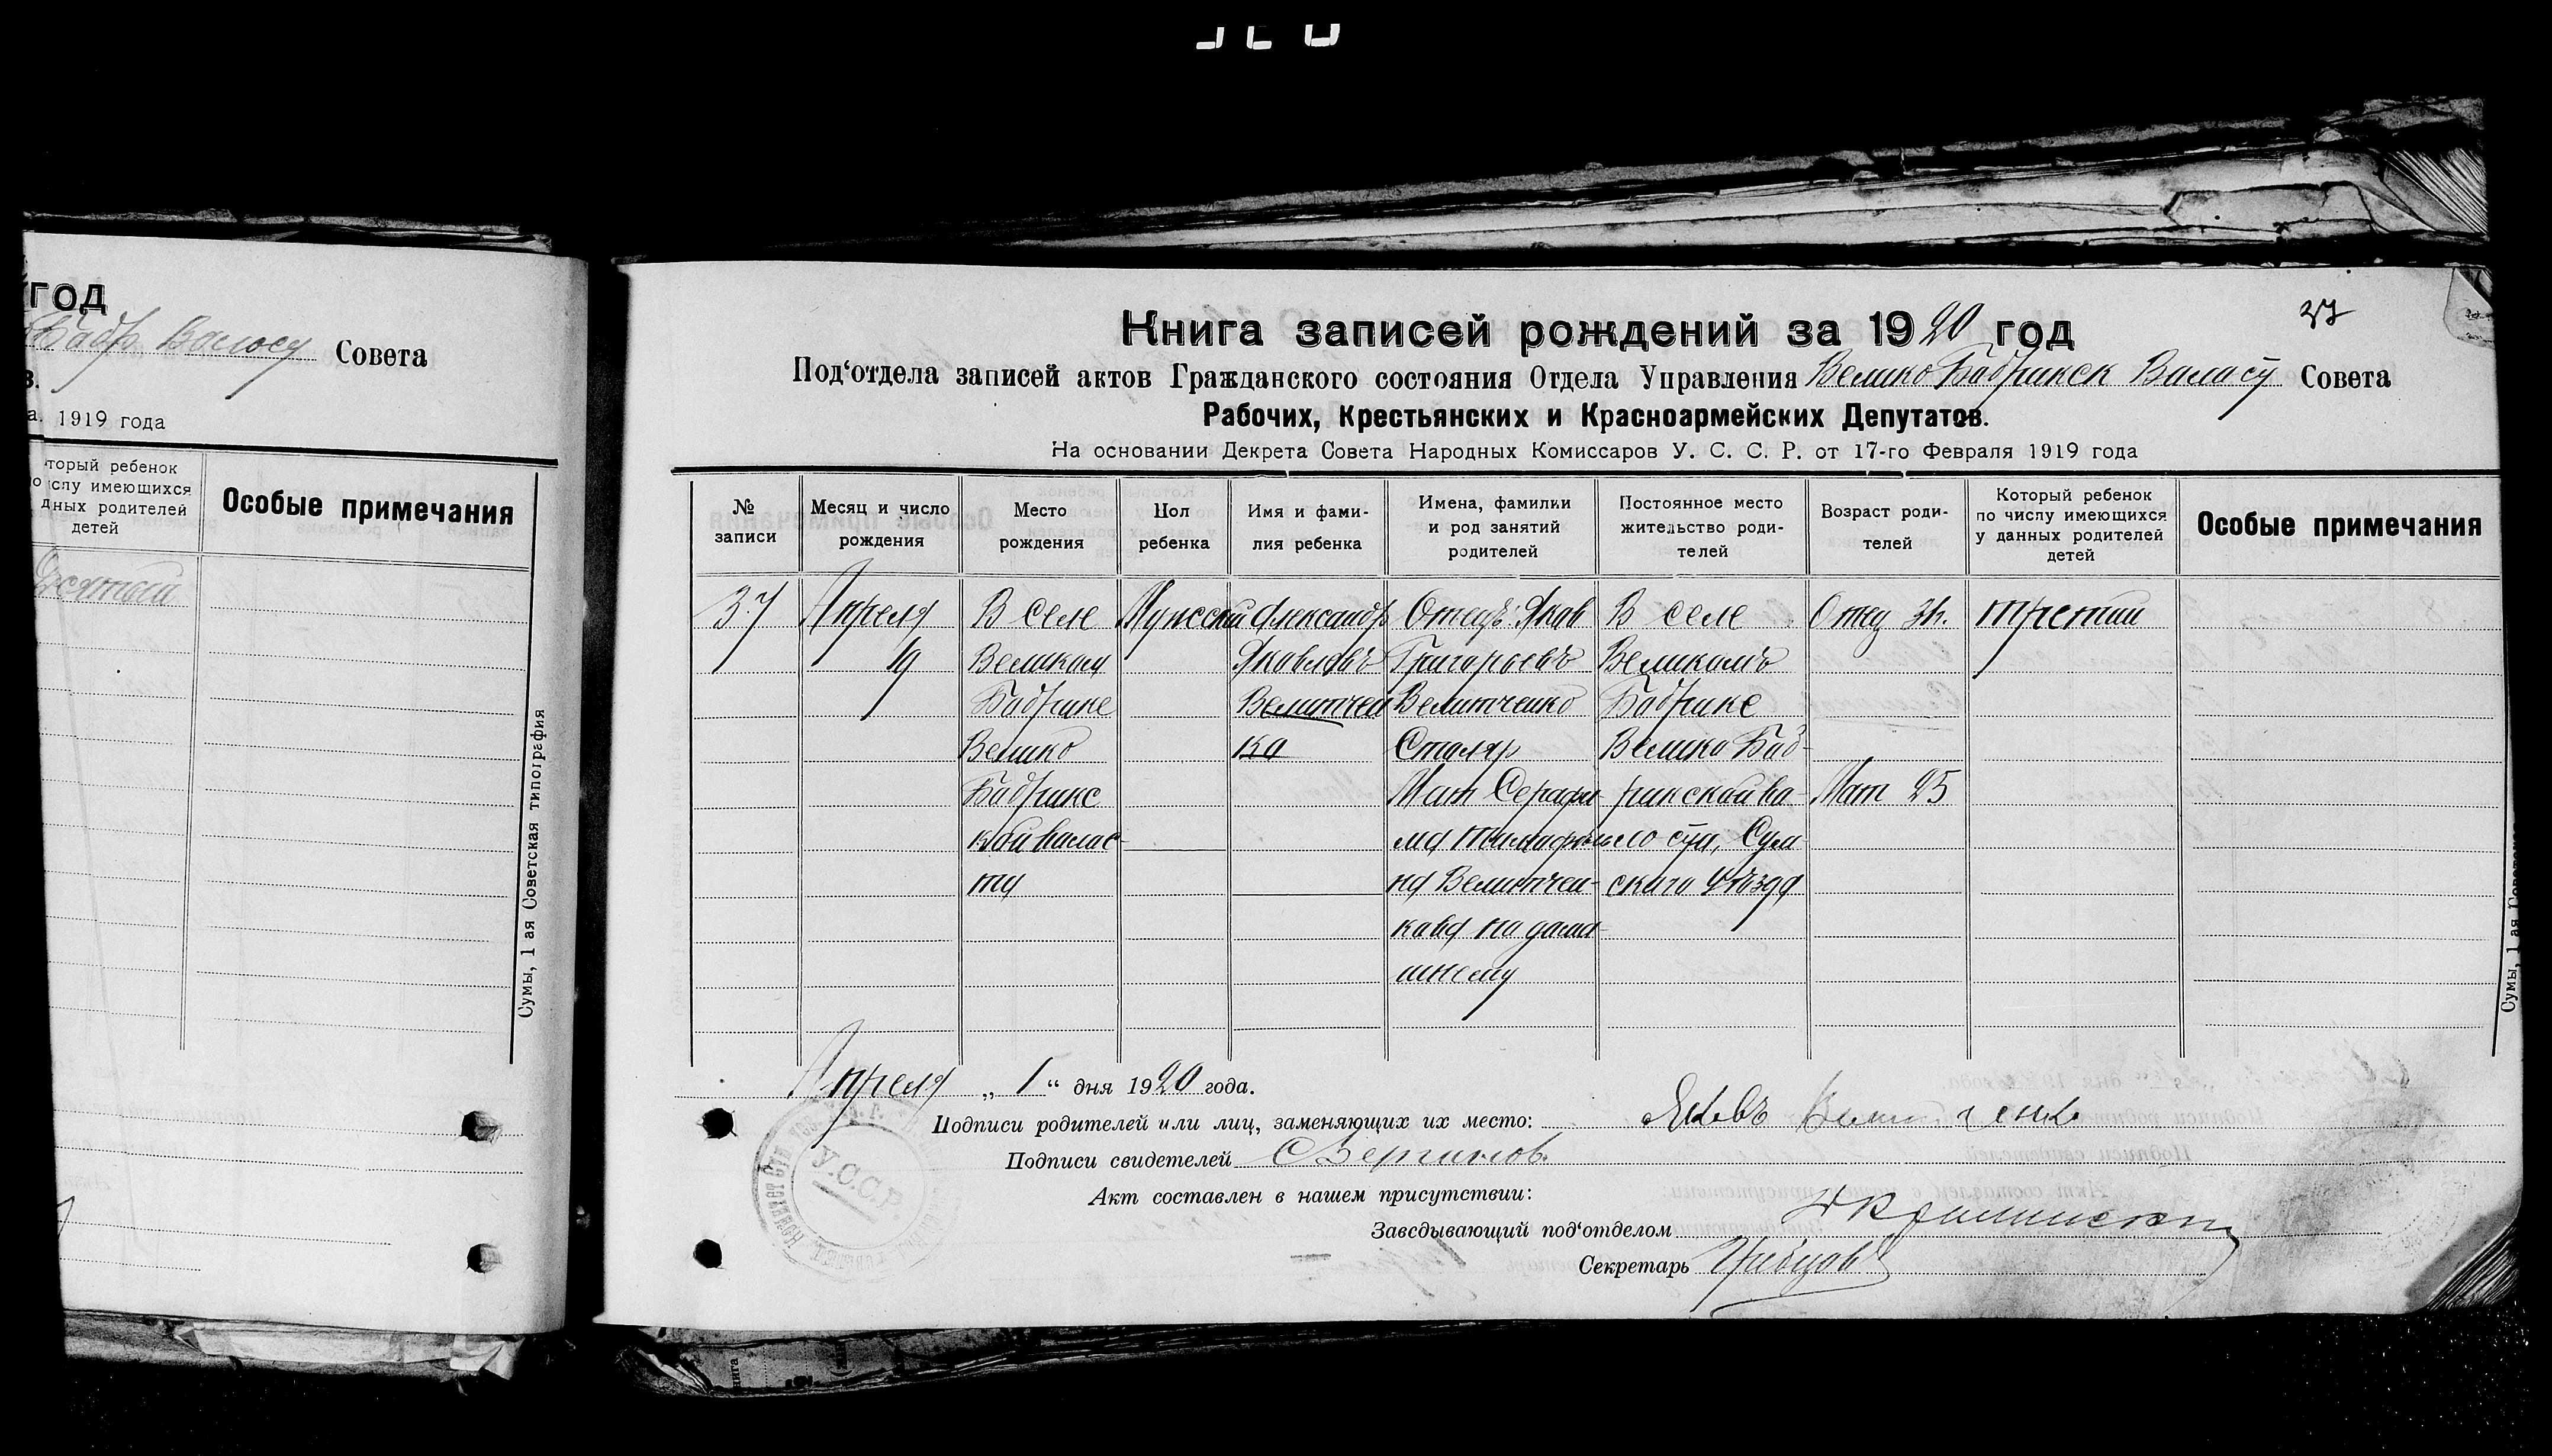 год
Бобр. Волосу Совета
в.
а. 1919 года
торый ребенок
о числу имеющихся
дных родителей
детей
Особые примечания
Сумы, 1 ая Советская типография
37
Книга записей рождений за 1920 год
Под'отдела записей актов Гражданского состояния Отдела Управления Велико Бобрикск Совета
Рабочих, Крестьянских и Красноармейских Депутатов.
На основании Декрета Совета Народных Комиссаров У. С. С. Р. от 17-го Февраля 1919 года
№ записи
Месяц и число рождения
Место рождения
Пол ребенка
Имя и фами-
лия ребенка
Имена, фамилки
и род занятий
родителей
Постоянное место
жительство роди-
телей
Возраст роди-
телей
Который ребенок
по числу имеющихся
у данных родителей
детей
Особые примечания
37
Апреля
19
В селе
Великом
Бобрике
Велико
Бобрикс
кой Волос-
тя
Мужской
Александр
Яковлевъ
Велитчен
ко
Отецъ: Яков
Григорьевъ
Велитченко
Столяр
Мат Серафи-
ма
на Велитчен-
кова по дома-
шнему
В селе
Великомъ
Бобрике
Велико Боб-
рикской во-
Сум-
скаго Уѣзда
Отец 31.
Мат 25
третий
Апреля „ 1 “ дня 1920 года.
Подписи родителей или лиц, заменяющих их место: Яковъ
Подписи свидетелей
Акт составлен в нашем присутствии:
Заведывающий под'отделом
Секретарь
У.С.С.Р.
Сумы, 1 ая